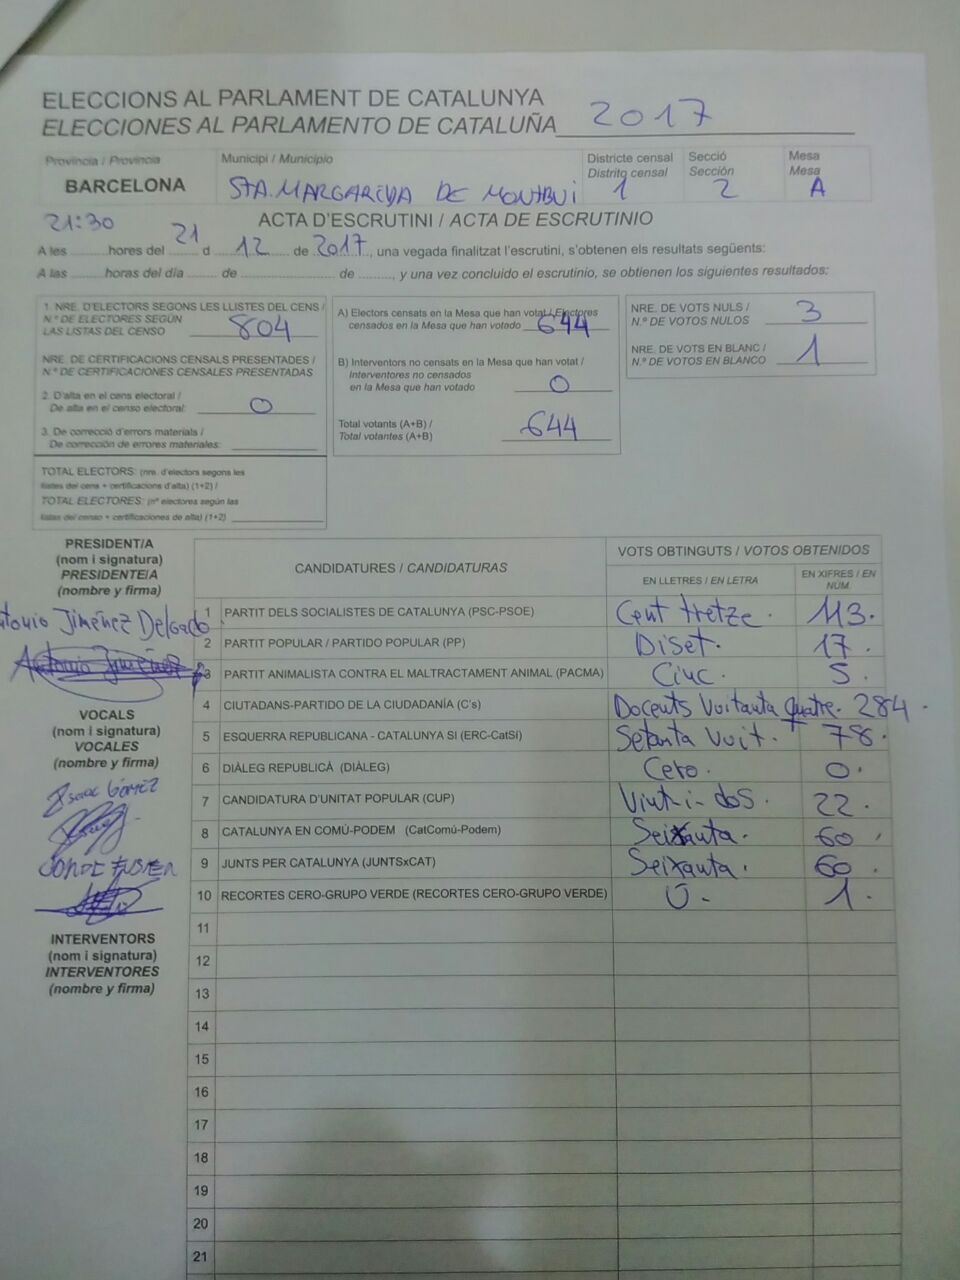 ELECCIONS AL PARLAMENT DE CATALUNYA
ELECCIONES AL PARLAMENTO DE CATALUÑA 2017
Provincia / Provincia
BARCELONA
Municipi / Municipio
STA. MARGARIDA DE MONTBUI
Districte censal
Distrito censal
1
Secció
Sección
2
Mesa
Mesa
A
ACTA D'ESCRUTINI / ACTA DE ESCRUTINIO
21:30
A les ........ hores del 21 d 12 de 2017, una vegada finalitzat l'escrutini, s'obtenen els resultats següents:
A las ........ horas del día ........ de ........ de ........, y una vez concluido el escrutinio, se obtienen los siguientes resultados:
1. NRE. D'ELECTORS SEGONS LES LLISTES DEL CENS /
N.º DE ELECTORES SEGÚN
LAS LISTAS DEL CENSO 804
NRE. DE CERTIFICACIONS CENSALS PRESENTADES /
N.º DE CERTIFICACIONES CENSALES PRESENTADAS
2. D'alta en el cens electoral /
De alta en el censo electoral: 0
3. De correcció d'errors materials /
De corrección de errores materiales:
TOTAL ELECTORS: (nre. d'electors segons les
llistes del cens + certificacions d'alta) (1+2) /
TOTAL ELECTORES: (nº electores según las
listas del censo + certificaciones de alta) (1+2)
A) Electors censats en la Mesa que han votat / Electores
censados en la Mesa que han votado 644
B) Interventors no censats en la Mesa que han votat /
Interventores no censados
en la Mesa que han votado 0
Total votants (A+B) /
Total votantes (A+B) 644
NRE. DE VOTS NULS /
N.º DE VOTOS NULOS 3
NRE. DE VOTS EN BLANC /
N.º DE VOTOS EN BLANCO 1
PRESIDENT/A
(nom i signatura)
PRESIDENTE/A
(nombre y firma)
ntonio Jiménez Delgado
Antonio Jiménez
VOCALS
(nom i signatura)
VOCALES
(nombre y firma)
Isaac GÓMEZ
INTERVENTORS
(nom i signatura)
INTERVENTORES
(nombre y firma)
CANDIDATURES / CANDIDATURAS
VOTS OBTINGUTS / VOTOS OBTENIDOS
EN LLETRES / EN LETRA
EN XIFRES / EN
NÚM.
1 PARTIT DELS SOCIALISTES DE CATALUNYA (PSC-PSOE) Cent tretze. 113.
2 PARTIT POPULAR / PARTIDO POPULAR (PP) Diset. 17.
3 PARTIT ANIMALISTA CONTRA EL MALTRACTAMENT ANIMAL (PACMA) Cinc. 5.
4 CIUTADANS-PARTIDO DE LA CIUDADANÍA (C's) Docents Vuitanta quatre. 284.
5 ESQUERRA REPUBLICANA - CATALUNYA SI (ERC-CatSí) Setanta Vuit. 78.
6 DIÀLEG REPUBLICÀ (DIÀLEG) Cero. 0.
7 CANDIDATURA D'UNITAT POPULAR (CUP) Vint-i-dos. 22.
8 CATALUNYA EN COMÚ-PODEM (CatComú-Podem) Seixanta. 60.
9 JUNTS PER CATALUNYA (JUNTSxCAT) Seixanta. 60.
10 RECORTES CERO-GRUPO VERDE (RECORTES CERO-GRUPO VERDE) U. 1.
11
12
13
14
15
16
17
18
19
20
21